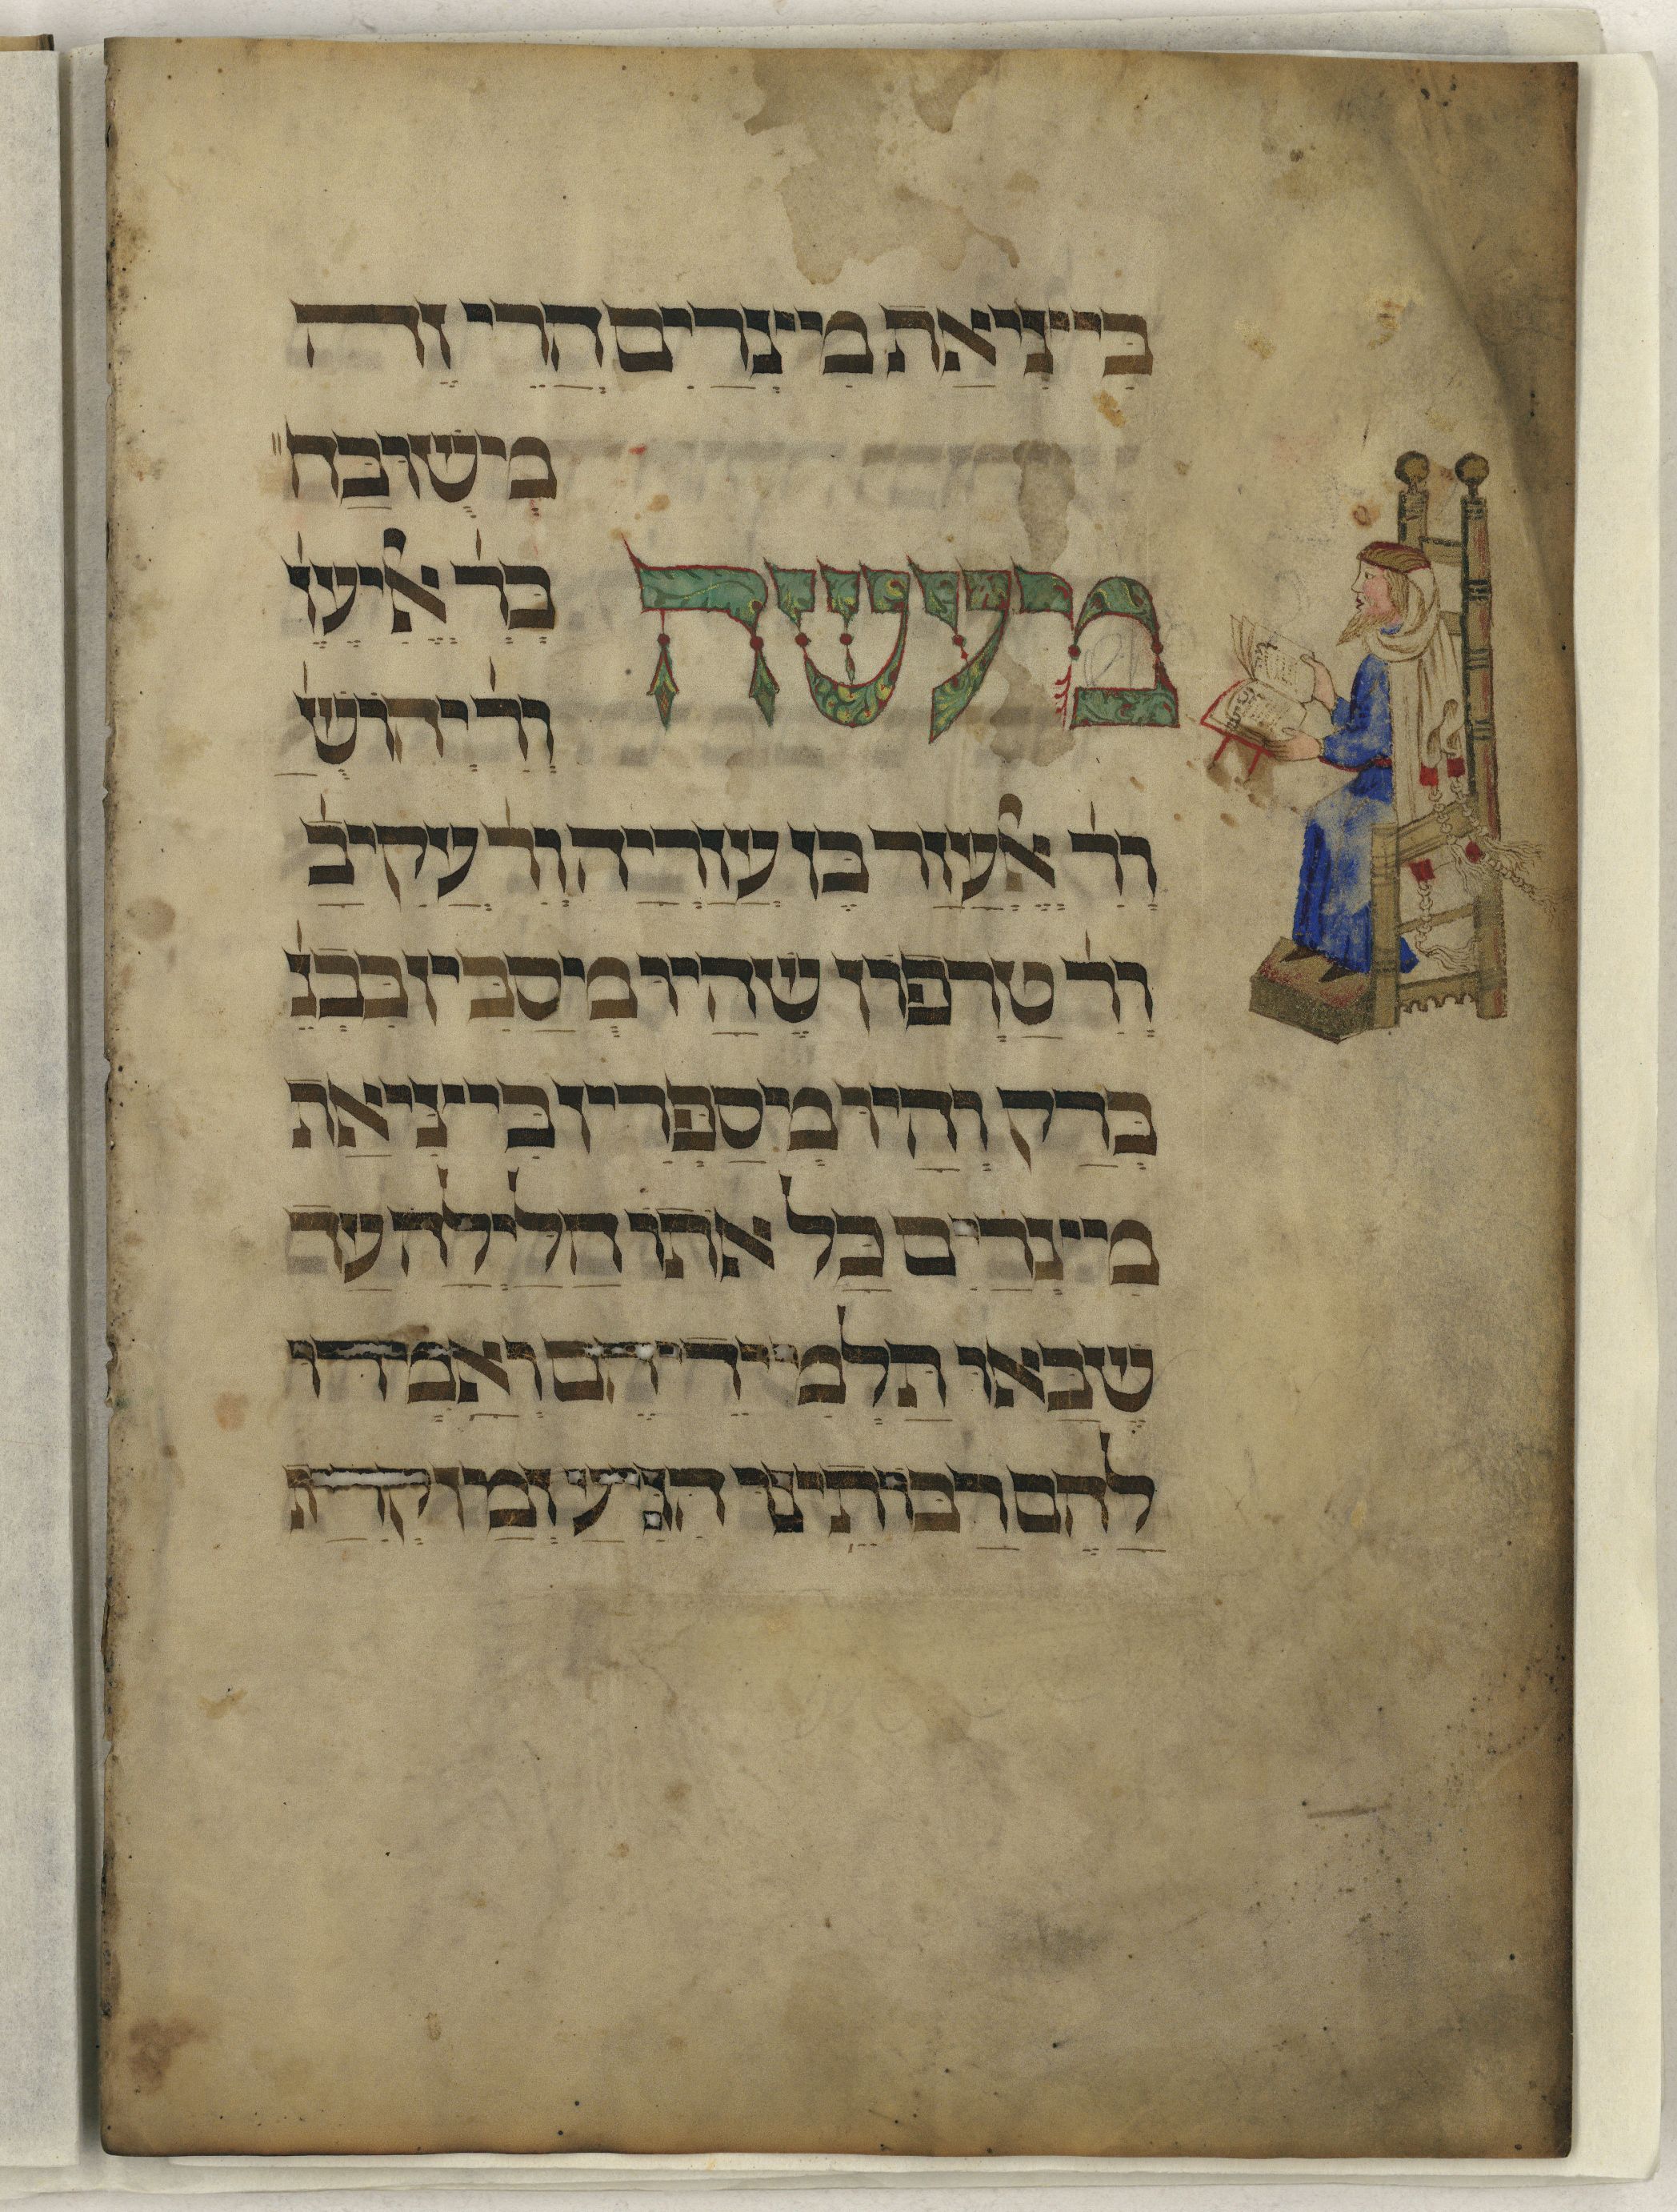 ביציאת מיצרים הרי זה
מישובח״
מעשה
בר׳ ﭏיעז׳
ור׳ יהוש׳
ור׳ ﭏעזר בן עזריה ור׳ עקיב׳
ור׳ טרפון שהיו מיסבין בבנ׳
ברק והיו מיספרין ביציאת
מיצרים כל אתו הלילה עד
שבאו תלמידיהם ואמרו
להם רבותינו הגיע זמן קרית